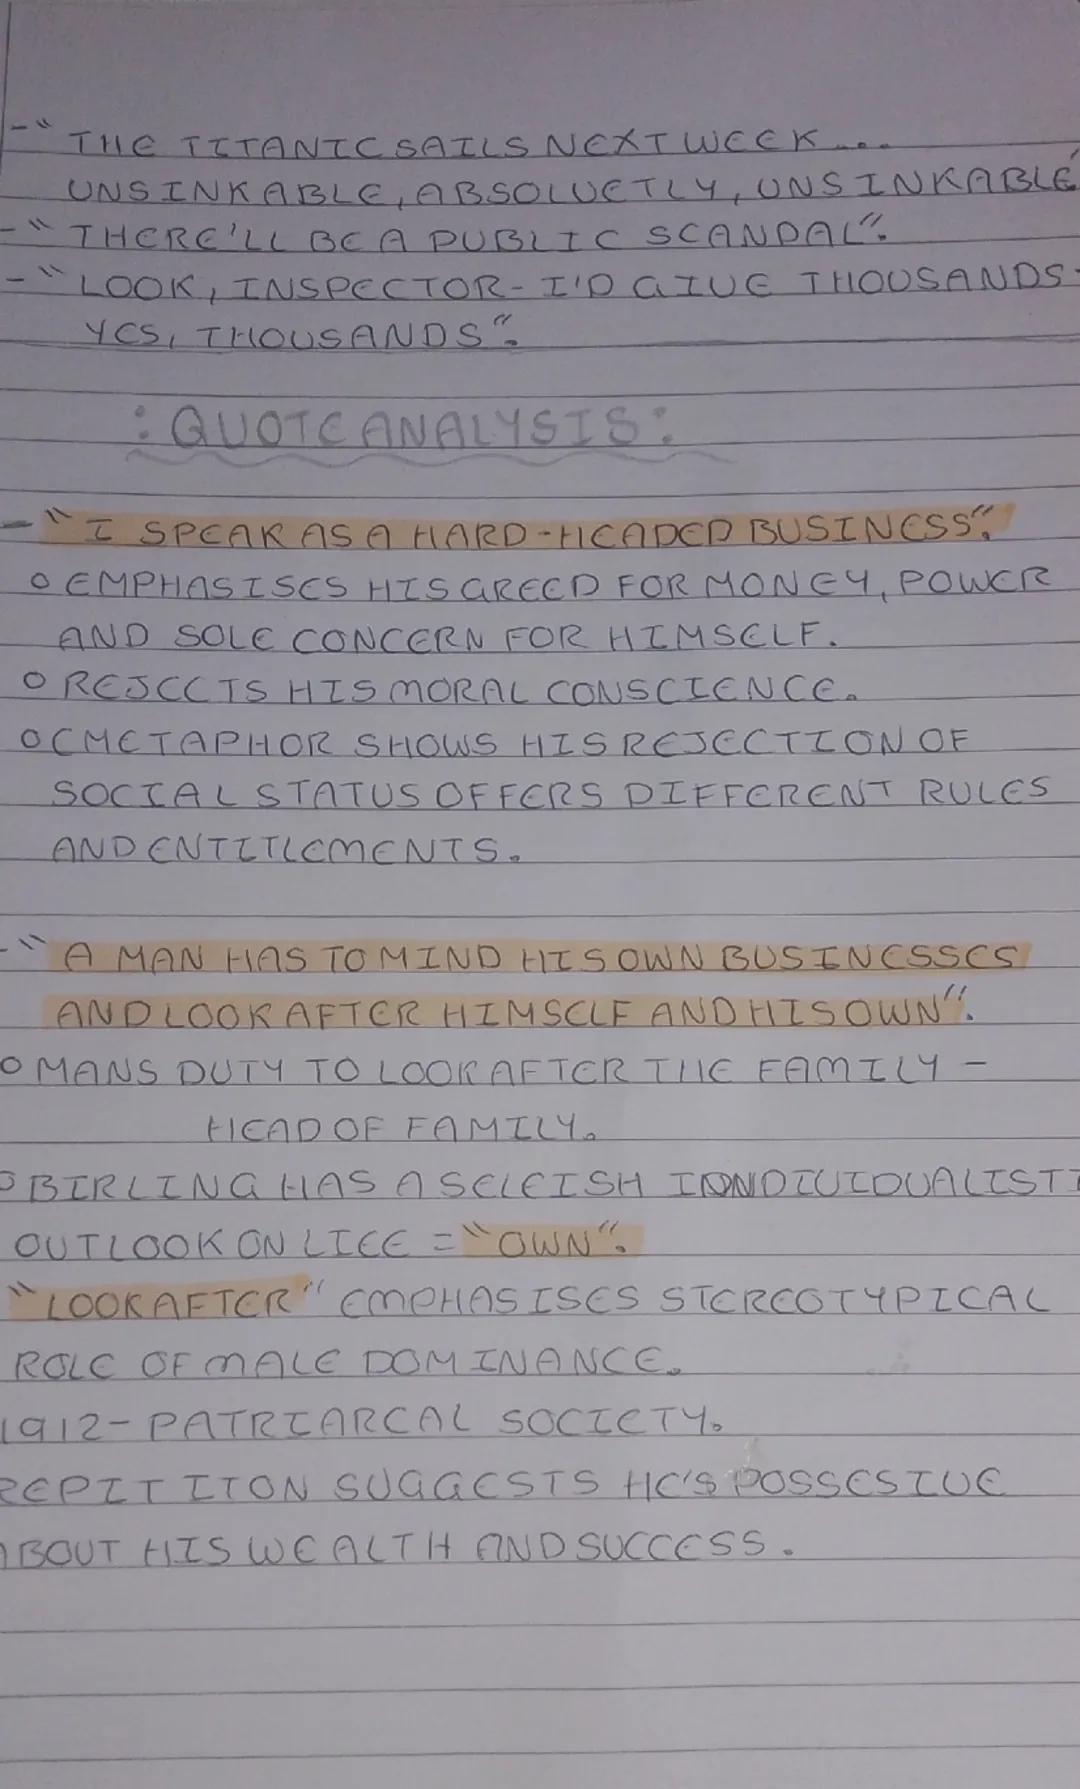 - "THE TITANIC SAILS NEXT WEEK...
UNSINKABLE, ABSOLUETLY, UNSINKABLE"
- "THERE'LL BE A PUBLIC SCANDAL".
- "LOOK, INSPECTOR - I'D GIVE THOUSANDS -
YES, THOUSANDS".
: QUOTE ANALYSIS :
- "I SPEAK AS A HARD-HEADED BUSINESS".
O EMPHASISES HIS GREED FOR MONEY, POWER
AND SOLE CONCERN FOR HIMSELF.
O REJECTS HIS MORAL CONSCIENCE.
O METAPHOR SHOWS HIS REJECTION OF
SOCIAL STATUS OFFERS DIFFERENT RULES
AND ENTITLEMENTS.
- "A MAN HAS TO MIND HIS OWN BUSINESSES
AND LOOK AFTER HIMSELF AND HIS OWN".
O MANS DUTY TO LOOK AFTER THE FAMILY -
HEAD OF FAMILY.
O BIRLING HAS A SELFISH INDIVIDUALISTI
OUTLOOK ON LIFE = "OWN".
"LOOK AFTER" EMPHASISES STEREOTYPICAL
ROLE OF MALE DOMINANCE.
1912 - PATRIARCAL SOCIETY.
REPITITION SUGGESTS HE'S POSSESIVE
ABOUT HIS WEALTH AND SUCCESS.